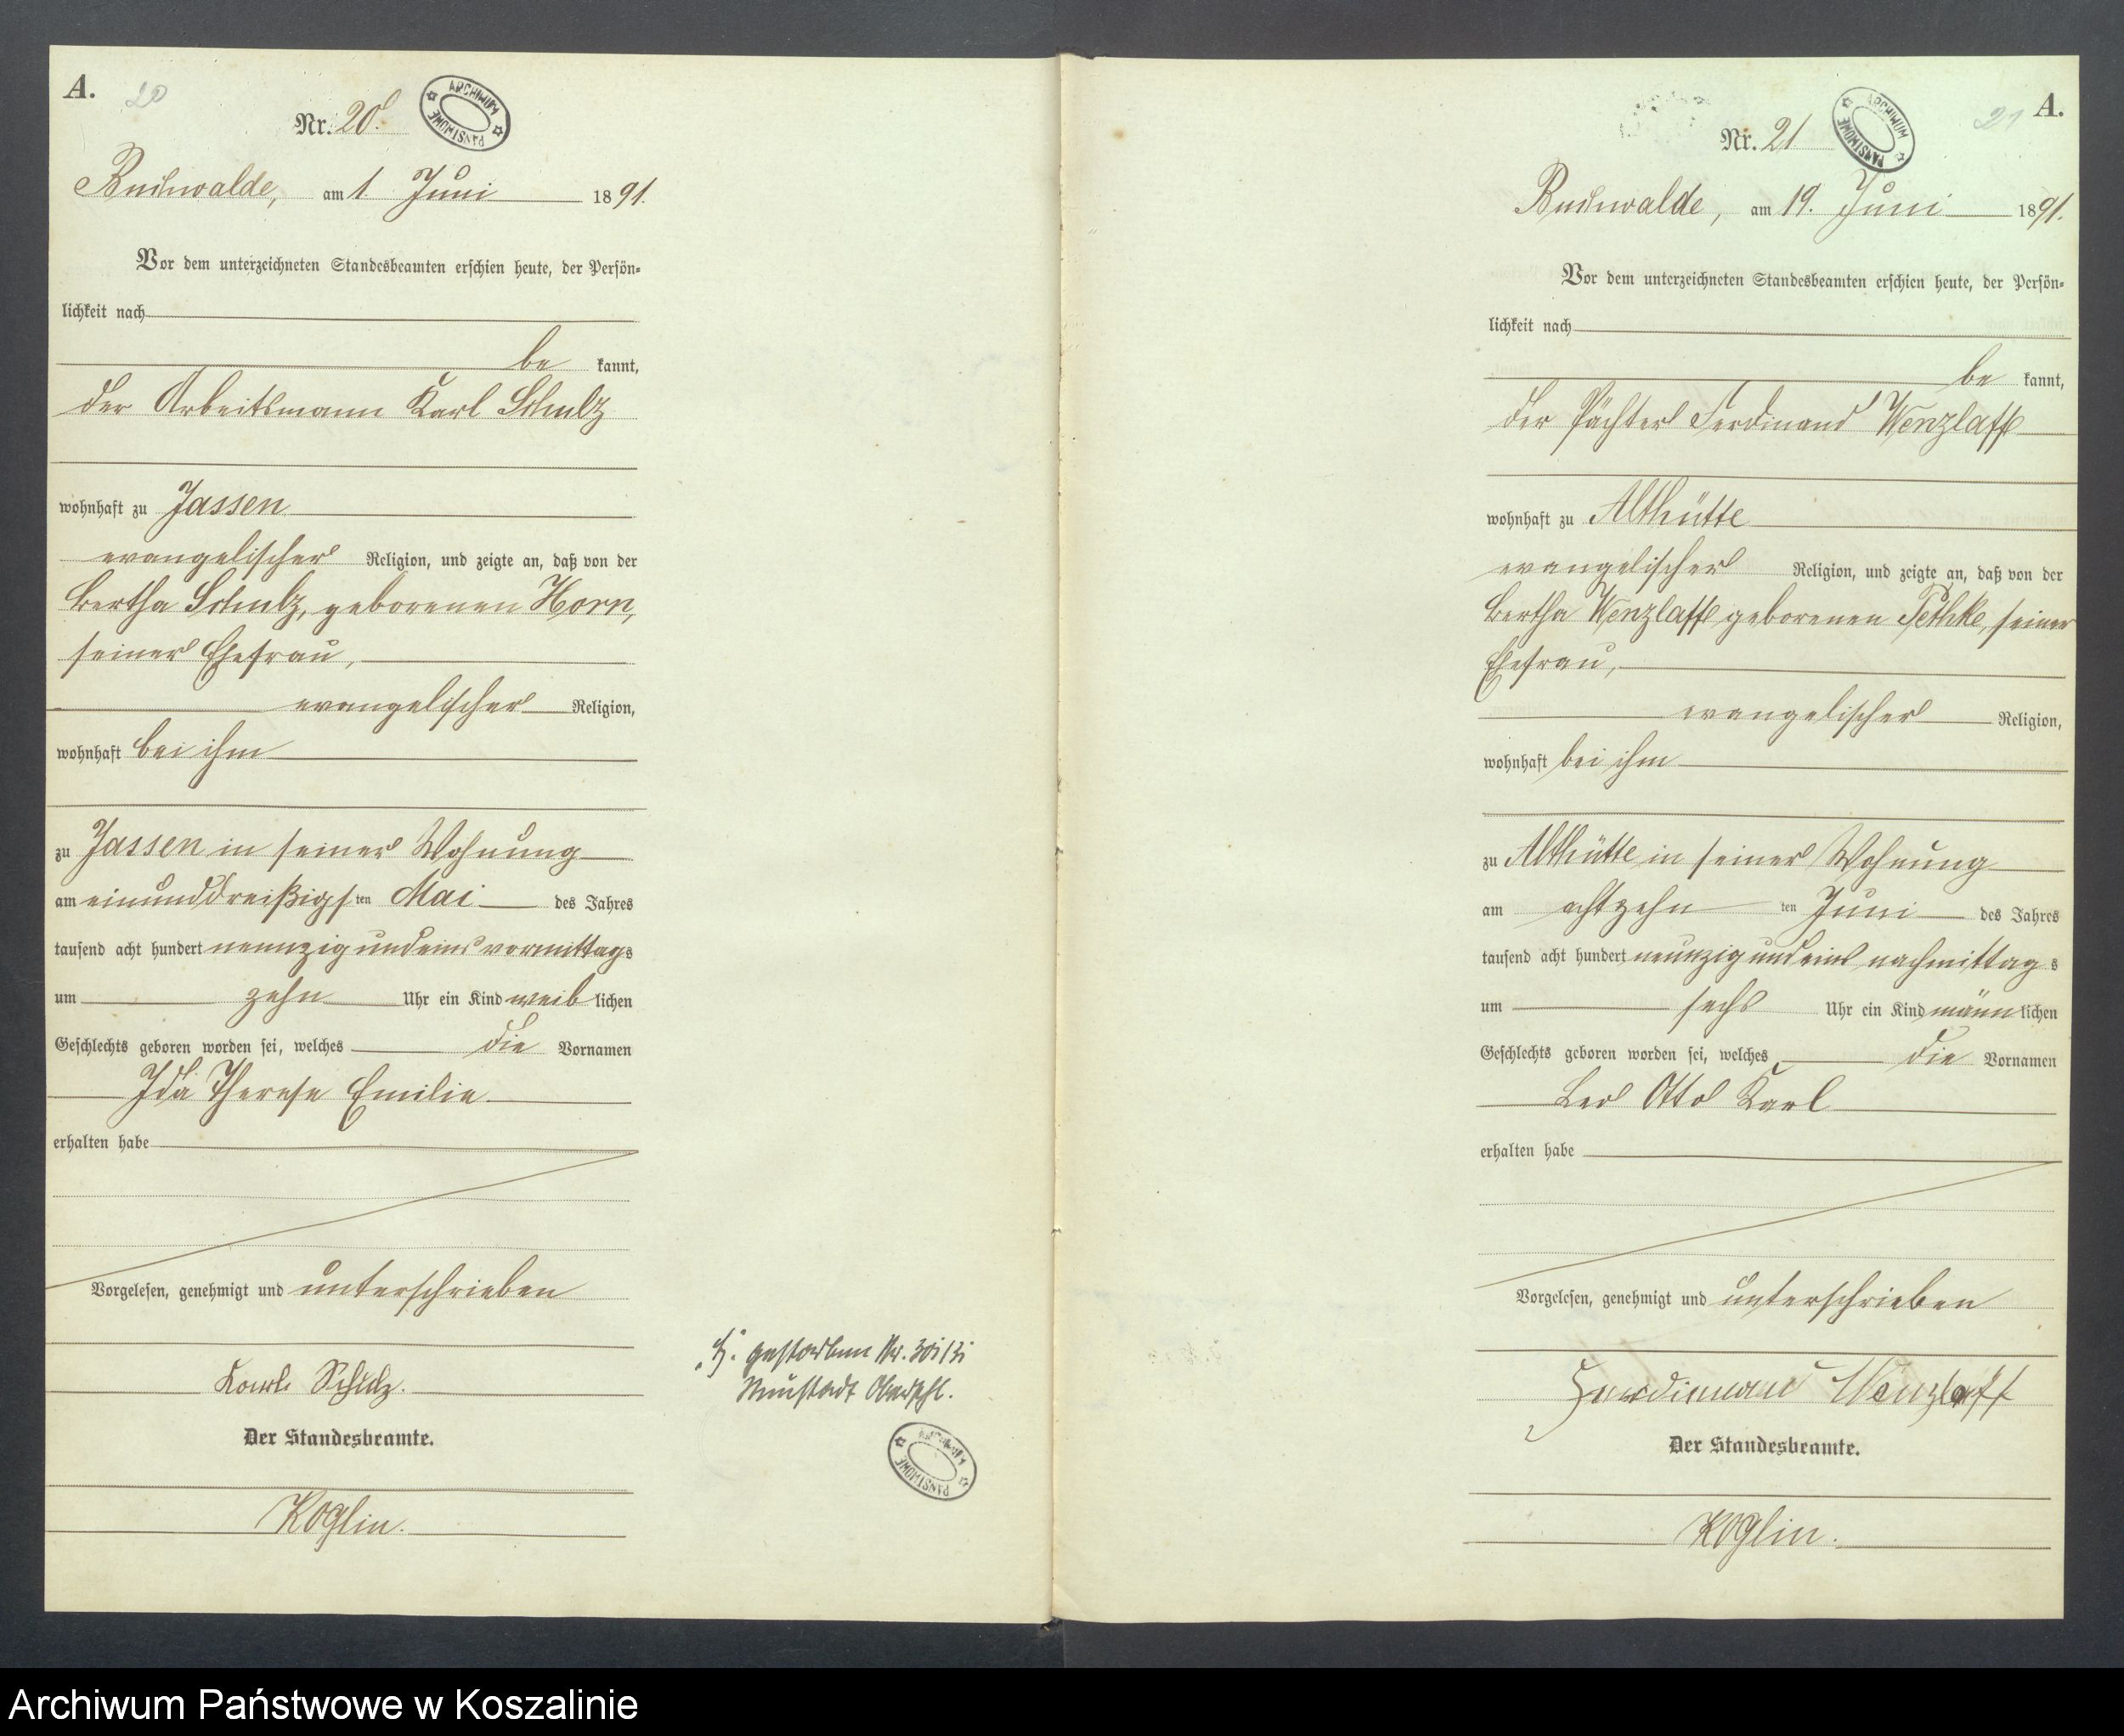 A.
20
Nr. 20.
ARCHIWUM PAŃSTWOWE
Buchwalde, am 1. Juni 1891.
Vor dem unterzeichneten Standesbeamten erschien heute, der Persön-
lichkeit nach
be kannt,
der Arbeitsmann Karl Schulz
wohnhaft zu Jassen
evangelischer Religion, und zeigte an, daß von der
Bertha Schulz, geborenen Horn,
seiner Ehefrau,
evangelischer Religion,
wohnhaft bei ihm
zu Jassen in seiner Wohnung
am einunddreißigsten Mai des Jahres
tausend acht hundert neunzig und eins vormittags
um zehn Uhr ein Kind weiblichen
Geschlechts geboren worden sei, welches die Vornamen
Ida Therese Emilie
erhalten habe
Vorgelesen, genehmigt und unterschrieben
Karl Schulz.
Der Standesbeamte.
Koglin.
gestorben Nr.
Neustadt
ARCHIWUM PAŃSTWOWE
A.
21
Nr. 21
ARCHIWUM PAŃSTWOWE
Buchwalde, am 19. Juni 1891.
Vor dem unterzeichneten Standesbeamten erschien heute, der Persön-
lichkeit nach
be kannt,
der Pächter Ferdinand Wenzlaff
wohnhaft zu Althütte
evangelischer Religion, und zeigte an, daß von der
Bertha Wenzlaff geborenen Pethke, seiner
Ehefrau,
evangelischer Religion,
wohnhaft bei ihm
zu Althütte in seiner Wohnung
am achtzehnten Juni des Jahres
tausend acht hundert neunzig und eins nachmittags
um sechs Uhr ein Kind männlichen
Geschlechts geboren worden sei, welches die Vornamen
Leo Otto Karl
erhalten habe
Vorgelesen, genehmigt und unterschrieben
Ferdinand Wenzlaff
Der Standesbeamte.
Koglin.
Archiwum Państwowe w Koszalinie